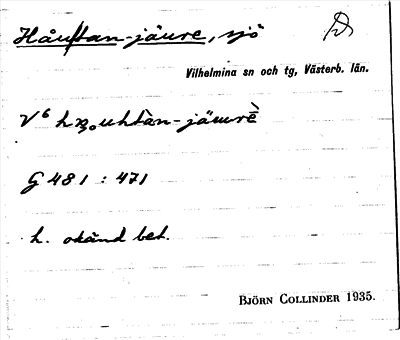 Håuftan-jäure, sjö
Vilhelmina sn och tg, Västerb. län.
V⁶
G 481 : 471
h. okänd bet.
BJÖRN COLLINDER 1935.